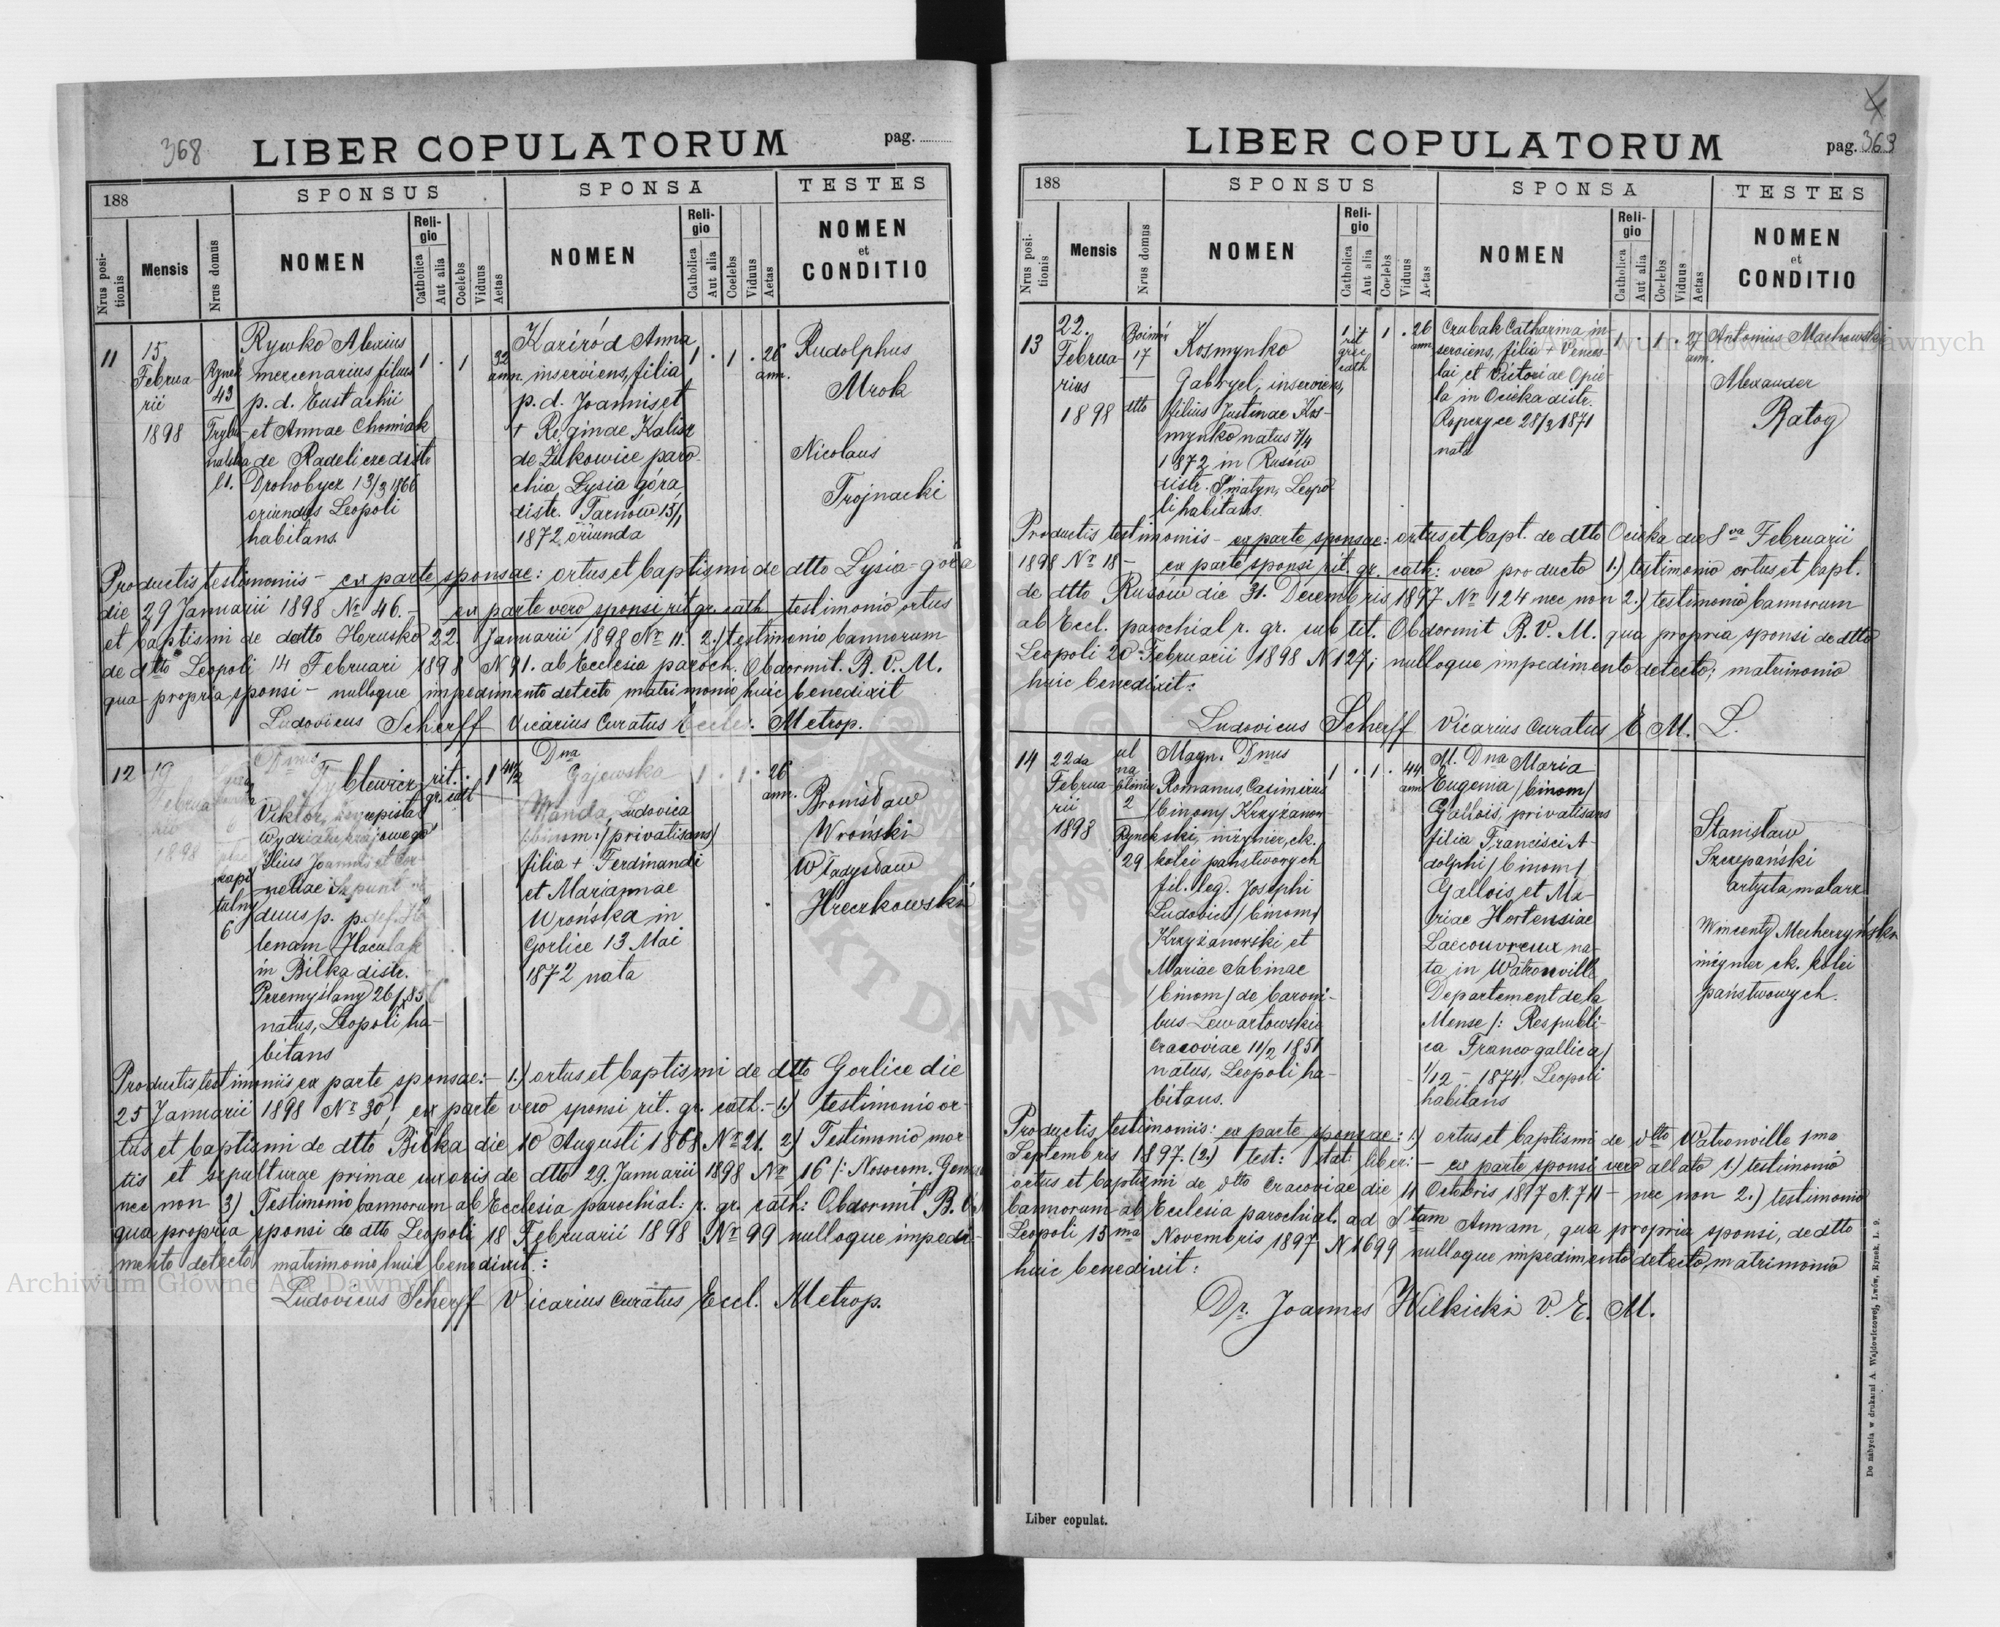 368
LIBER COPULATORUM
pag.
188
SPONSUS
SPONSA
TESTES
Nrus positionis
Mensis
Nrus domus
NOMEN
Religio
Catholica
Aut alia
Coelebs
Viduus
Aetas
NOMEN
Religio
Catholica
Aut alia
Coelebs
Viduus
Aetas
NOMEN
et
CONDITIO
11
15
Februa
rii
1898
Rynek
43
Rywko Alexius
mercenarius filius
p. d. Eustachii
et Annae Chomiak
de Radelicze distr.
Drohobycz 13/3 1866
oriundus Leopoli
habitans
1 . 1
32
ann.
Kaziród Anna
inserviens, filia
p. d. Joannis et
+ Reginae Kalisz
de Żukowice paro
chia Łysia góra
distr. Tarnów 15/1
1872 oriunda
1 . 1 . 26
ann.
Rudolphus
Mrok
Nicolaus
Trojnacki
Productis testimoniis - ex parte sponsae: ortus et baptismi de dtto Łysia-góra
die 29 Januarii 1898 Nr 46. - ex parte vero sponsi rit. gr. cath. testimonio ortus
et baptismi de dtto Horusko 22. Januarii 1898 Nr 11. 2.) testimonio bannorum
de dtto Leopoli 14 Februari 1898 N 91. ab Ecclesia paroch. Obdormit. B. V. M.
qua propria sponsi - nulloque impedimento detecto matrimonio huic benedixit
Ludovicus Scherff Vicarius Curatus Eccle. Metrop.
12
19
Februa
rii
1898
kapi
tulny
6
Viktor, koncepista
Wydziału krajowego
filius Joannis et Cor-
neliae Szpunt vi
duus p. p. def. He
lenam Haculak
in Biłka distr.
Przemyślany 26/ 1856
natus, Leopoli ha-
bitans
rit.
gr. cath
1
Dna
Gajewska
Wanda, Ludovica
(binom:) privatisans
filia + Ferdinandi
et Mariannae
Wrońska in
Gorlice 13 Mai
1872 nata
1 . 1 . 26
ann.
Bronisław
Wroński
Władysław
Hreczkowski
Productis testimoniis ex parte sponsae: - 1.) ortus et baptismi de dtto Gorlice die
25 Januarii 1898 Nr 30, ex parte vero sponsi rit. gr. cath. - 1.) testimonio or-
tus et baptismi de dtto Biłka die 10 Augusti 1868 Nr 21. 2) Testimonio mor-
tis et sepulturae primae uxoris de dtto 29. Januarii 1898 Nr 16 /: Nosocom. Gen
nec non 3) Testimonio bannorum ab Ecclesia parochial: r. gr. cath: Obdormit B. V.
qua propria sponsi de dtto Leopoli 18 Februarii 1898 Nr 99 nulloque impedi-
mento detecto matrimonio huic benedixit:
Ludovicus Scherff Vicarius Curatus Eccl. Metrop.
LIBER COPULATORUM
pag. 369
188
SPONSUS
SPONSA
TESTES
Nrus positionis
Mensis
Nrus domus
NOMEN
Religio
Catholica
Aut alia
Coelebs
Viduus
Aetas
NOMEN
Religio
Catholica
Aut alia
Coelebs
Viduus
Aetas
NOMEN
et
CONDITIO
13
22.
Februa
rius
1898
Boimów
17
dtto
Kosmynko
Gabryel, inserviens,
filius Justinae Kos-
mynko natus 7/4
1872 in Rusów
distr. Śniatyn, Leopo
li habitans.
1
rit
grec
cath
1 . 26
ann
Crabak Catharina in-
serviens, filia + Vences-
lai et Victoriae Opie-
la in Ocieka distr.
Ropczyce 28/3 1871
nata
1 . 1 . 27
ann.
Antonius Machowski
Alexander
Ratog
Productis testimoniis - ex parte sponsae: ortus et bapt. de dtto Ocieka die 8va Februarii
1898 Nr 18 - ex parte sponsi rit. gr. cath: vero producto 1.) testimonio ortus et bapt.
de dtto Rusów die 31. Decembris 1897 Nr 124 nec non 2.) testimonio bannorum
ab Eccl. parochial r. gr. sub tit. Obdormit B. V. M. qua propria sponsi de dtto
Leopoli 20 Februarii 1898 N 127; nulloque impedimento detecto; matrimonio
huic benedixit:
Ludovicus Scherff Vicarius Curatus E. M. L.
14
22da
Februa
rii
1898
2
Rynek
29
Magn. Dnus
Romanus, Casimirus
/binom/ Krzyżanow-
ski, inżynier, ck.
kolei państwowych
fil. leg. Josephi
Ludovici /binom/
Krzyżanowski et
Mariae Sabinae
/binom/ de baroni-
bus Lewartowskie
Cracoviae 11/2 1851
natus, Leopoli ha-
bitans.
1 . 1 . 44
ann
M. Dna Maria
Eugenia /binom/
Gallois, privatisans
filia Francisci A-
dolphi /binom/
Gallois, et Ma
riae Hortensiae
Laecouvreux na-
ta in Watronville
Departement de la
Mense /: Respubli-
ca Franco gallica/
1/12 - 1874. Leopoli
habitans
Stanisław
Szczepański
artysta malarz
Wincenty Mecherzyński
inżynier ck. kolei
państwowych.
Productis testimoniis: ex parte sponsae: 1.) ortus et baptismi de dtto Watronville 1ma
Septembris 1897. (2.) test: stat: liber: - ex parte sponsi vero allato 1.) testimonio
ortus et baptismi de dtto Cracoviae die 11 Octobris 1897 N. 711 - nec non 2.) testimonio
bannorum ab Ecclesia parochial. ad Stam Annam, qua propria sponsi, de dtto
Leopoli 15ma Novembris 1897 N 1699 nulloque impedimento detecto, matrimonio
huic benedixit:
Dr. Joannes Wilkicki V. E. M.
Liber copulat.
Do nabycia w drukarni A. Wajdowiczowej, Lwów, Rynek, L. 9.
Archiwum Główne Akt Dawnych
Archiwum Główne Akt Dawnych